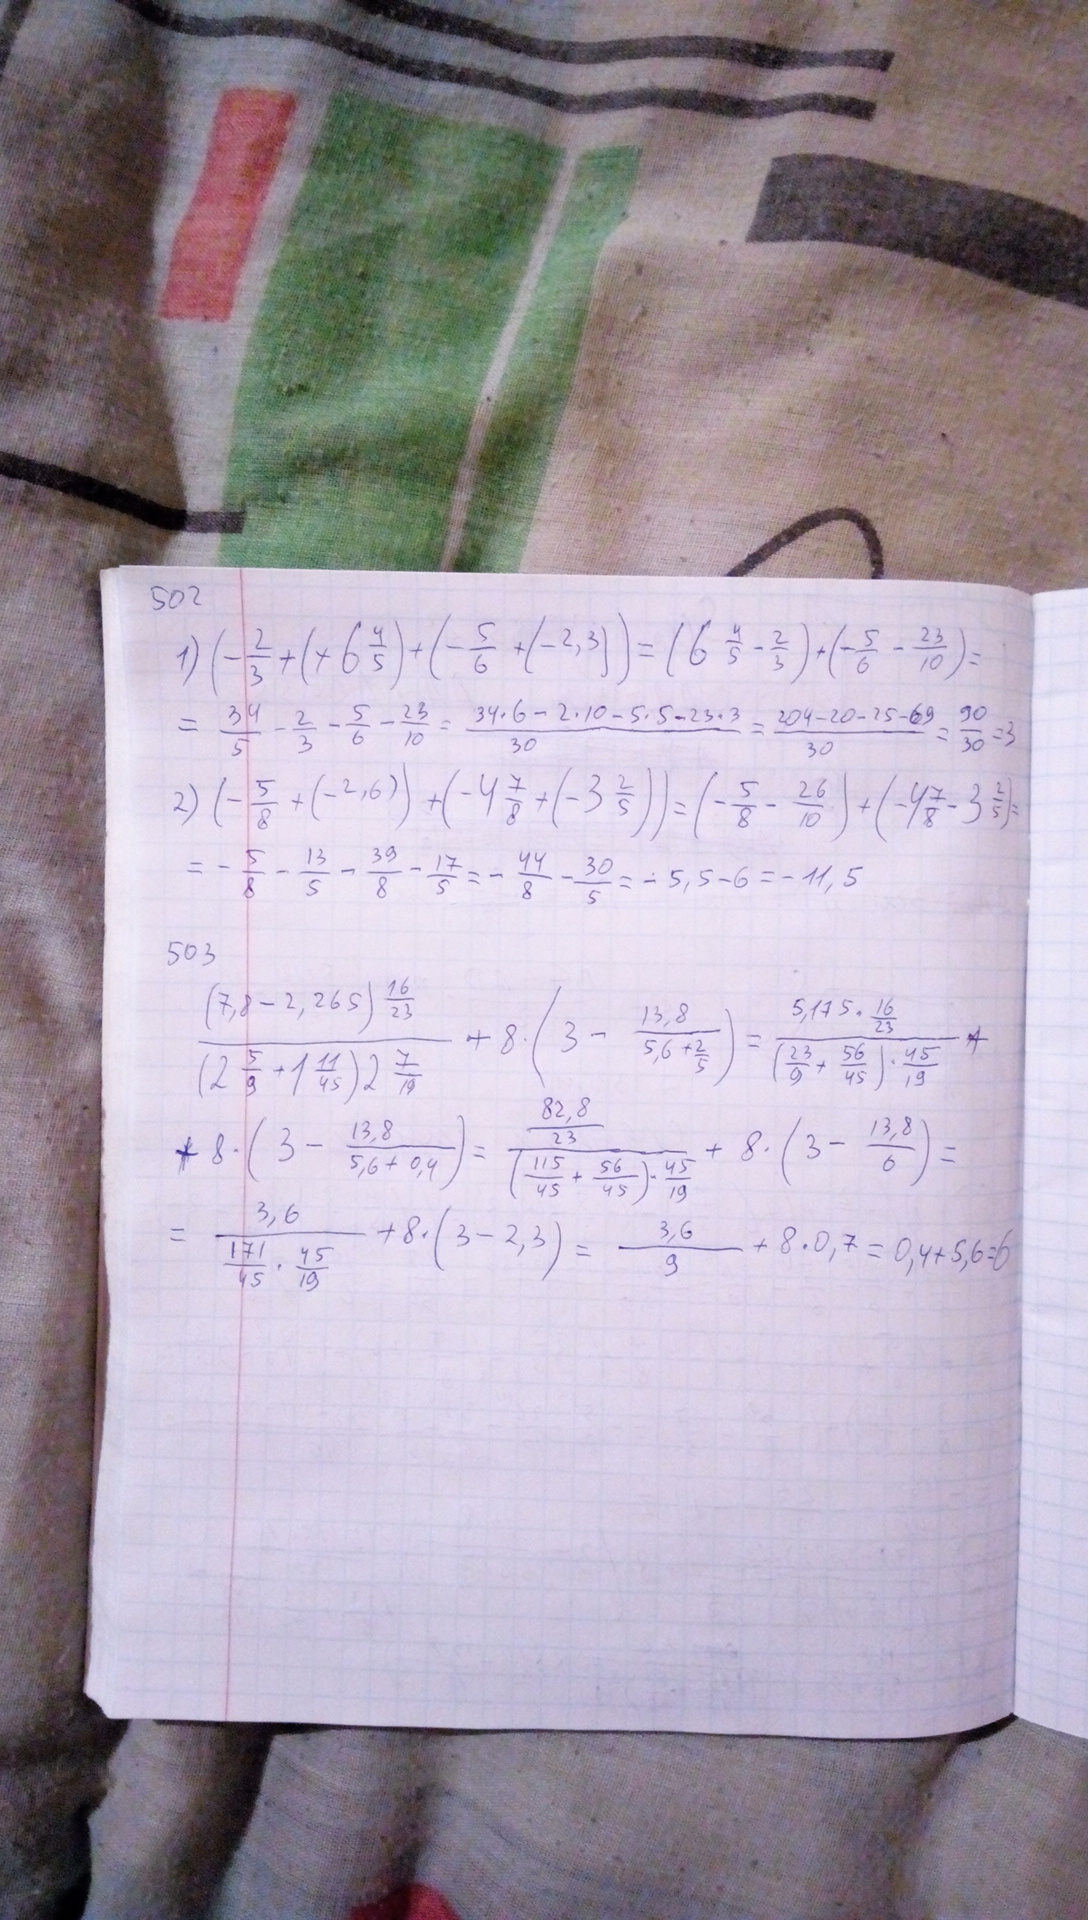 502
1) (-2/3 + (+6 4/5) + (-5/6 + (-2,3)) = (6 4/5 - 2/3) + (-5/6 - 23/10) =
= 34/5 - 2/3 - 5/6 - 23/10 = (34·6 - 2·10 - 5·5 - 23·3)/30 = (204-20-25-69)/30 = 90/30 = 3
2) (-5/8 + (-2,6)) + (-4 7/8 + (-3 2/5)) = (-5/8 - 26/10) + (-4 7/8 - 3 2/5) =
= -5/8 - 13/5 - 39/8 - 17/5 = -44/8 - 30/5 = -5,5-6 = -11,5
503
(7,8 - 2,265) 16/23 / (2 5/9 + 1 11/45) 2 7/19 + 8·(3 - 13,8/(5,6 + 2/5)) = 5,175 · 16/23 / (23/9 + 56/45) · 45/19 +
+ 8·(3 - 13,8/(5,6 + 0,4)) = 82,8/23 / (115/45 + 56/45) · 45/19 + 8·(3 - 13,8/6) =
= 3,6 / 171/45 · 45/19 + 8·(3 - 2,3) = 3,6/9 + 8·0,7 = 0,4+5,6=6